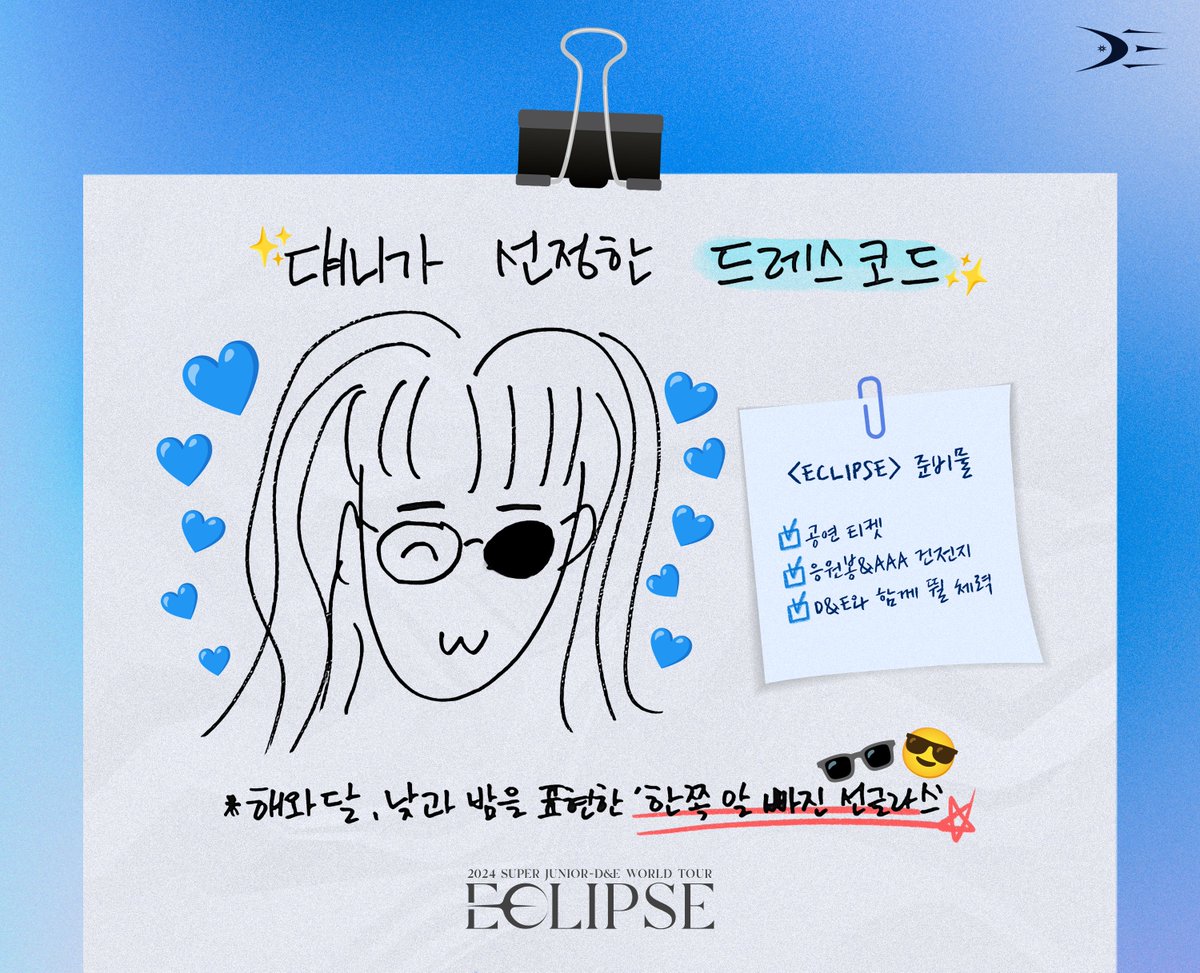 댸니가 선정한 드레스코드
<ECLIPSE> 준비물
공연 티켓
응원봉&AAA 건전지
D&E와 함께 뛸 체력
*해와 달, 낮과 밤을 표현한 '한쪽 알 빠진 선글라스'
2024 SUPER JUNIOR-D&E WORLD TOUR
ECLIPSE